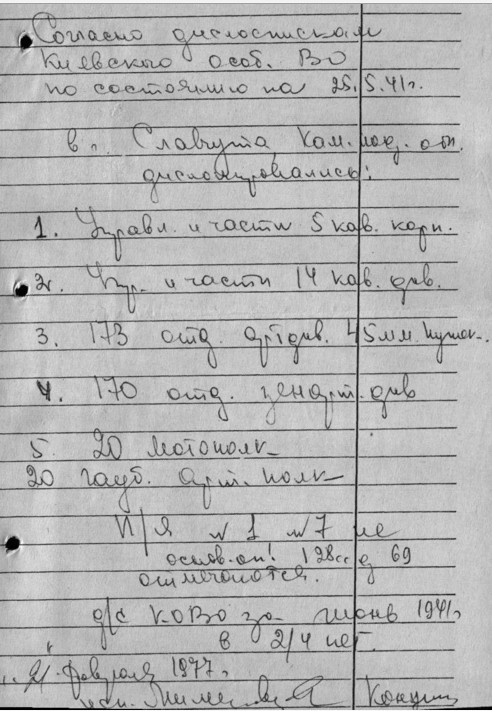 Согласно дислоспискам
Киевского особ. ВО
по состоянию на 25.5.41г.
в г. Славута, Кам. под. обл.
дислоцировались:
1. Управл. и части 5 кав. корп.
2. Упр. и части 14 кав. див.
3. 173 отд. артдив. 45мм. пушек.
4. 170 отд. зенарт. див
5. 20 мотополк
20 гауб. арт. полк
П/Я № 1 № 7 не
основ. оп! 128сс д 69
отмечаются.
д/с КОВО за июнь 1941г
в 2/4 нет.
21. февраля 1977г